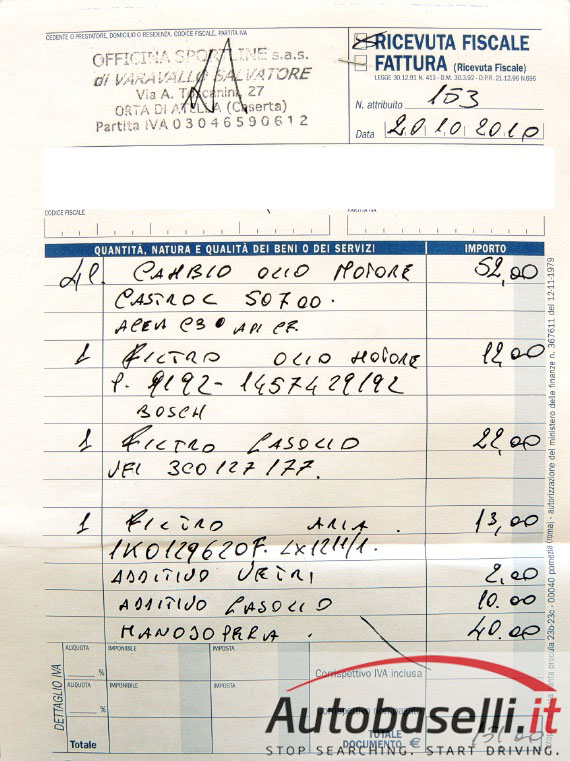 CEDENTE O PRESTATORE, DOMICILIO O RESIDENZA, CODICE FISCALE, PARTITA IVA
OFFICINA SPORTLINE s.a.s.
di VARAVALLO SALVATORE
Via A. Toscanini, 27
ORTA DI ATELLA (Caserta)
Partita IVA 03046590612
RICEVUTA FISCALE
FATTURA (Ricevuta Fiscale)
LEGGE 30.12.91 N. 413 - D.M. 30.3.92 - D.P.R. 21.12.96 N.696
N. attribuito 153
Data 20 10 2010
CODICE FISCALE
PARTITA IVA
QUANTITÀ, NATURA E QUALITÀ DEI BENI O DEI SERVIZI IMPORTO
4 l. CAMBIO OLIO MOTORE 52,00
CASTROL 50700.
ACEA C3 API CF
1 FILTRO OLIO MOTORE 12,00
P. 9192 - 1457429192
BOSCH
1 FILTRO GASOLIO 22,00
VEI 3C0127177.
1 FILTRO ARIA. 13,00
1K0129620F. LX1211/1.
ADDITIVO VETRI 2,00
ADDITIVO GASOLIO 10.00
MANODOPERA. 40.00
DETTAGLIO IVA
ALIQUOTA IMPONIBILE IMPOSTA
%
Corrispettivo IVA inclusa
ALIQUOTA IMPONIBILE IMPOSTA
%
Totale
TOTALE
DOCUMENTO € 151.00
autorizzazione del ministero delle finanze n. 367611 del 12-11-1979
23b-23c - 00040 pomezia (roma) -
Autobaselli.it
STOP SEARCHING. START DRIVING.